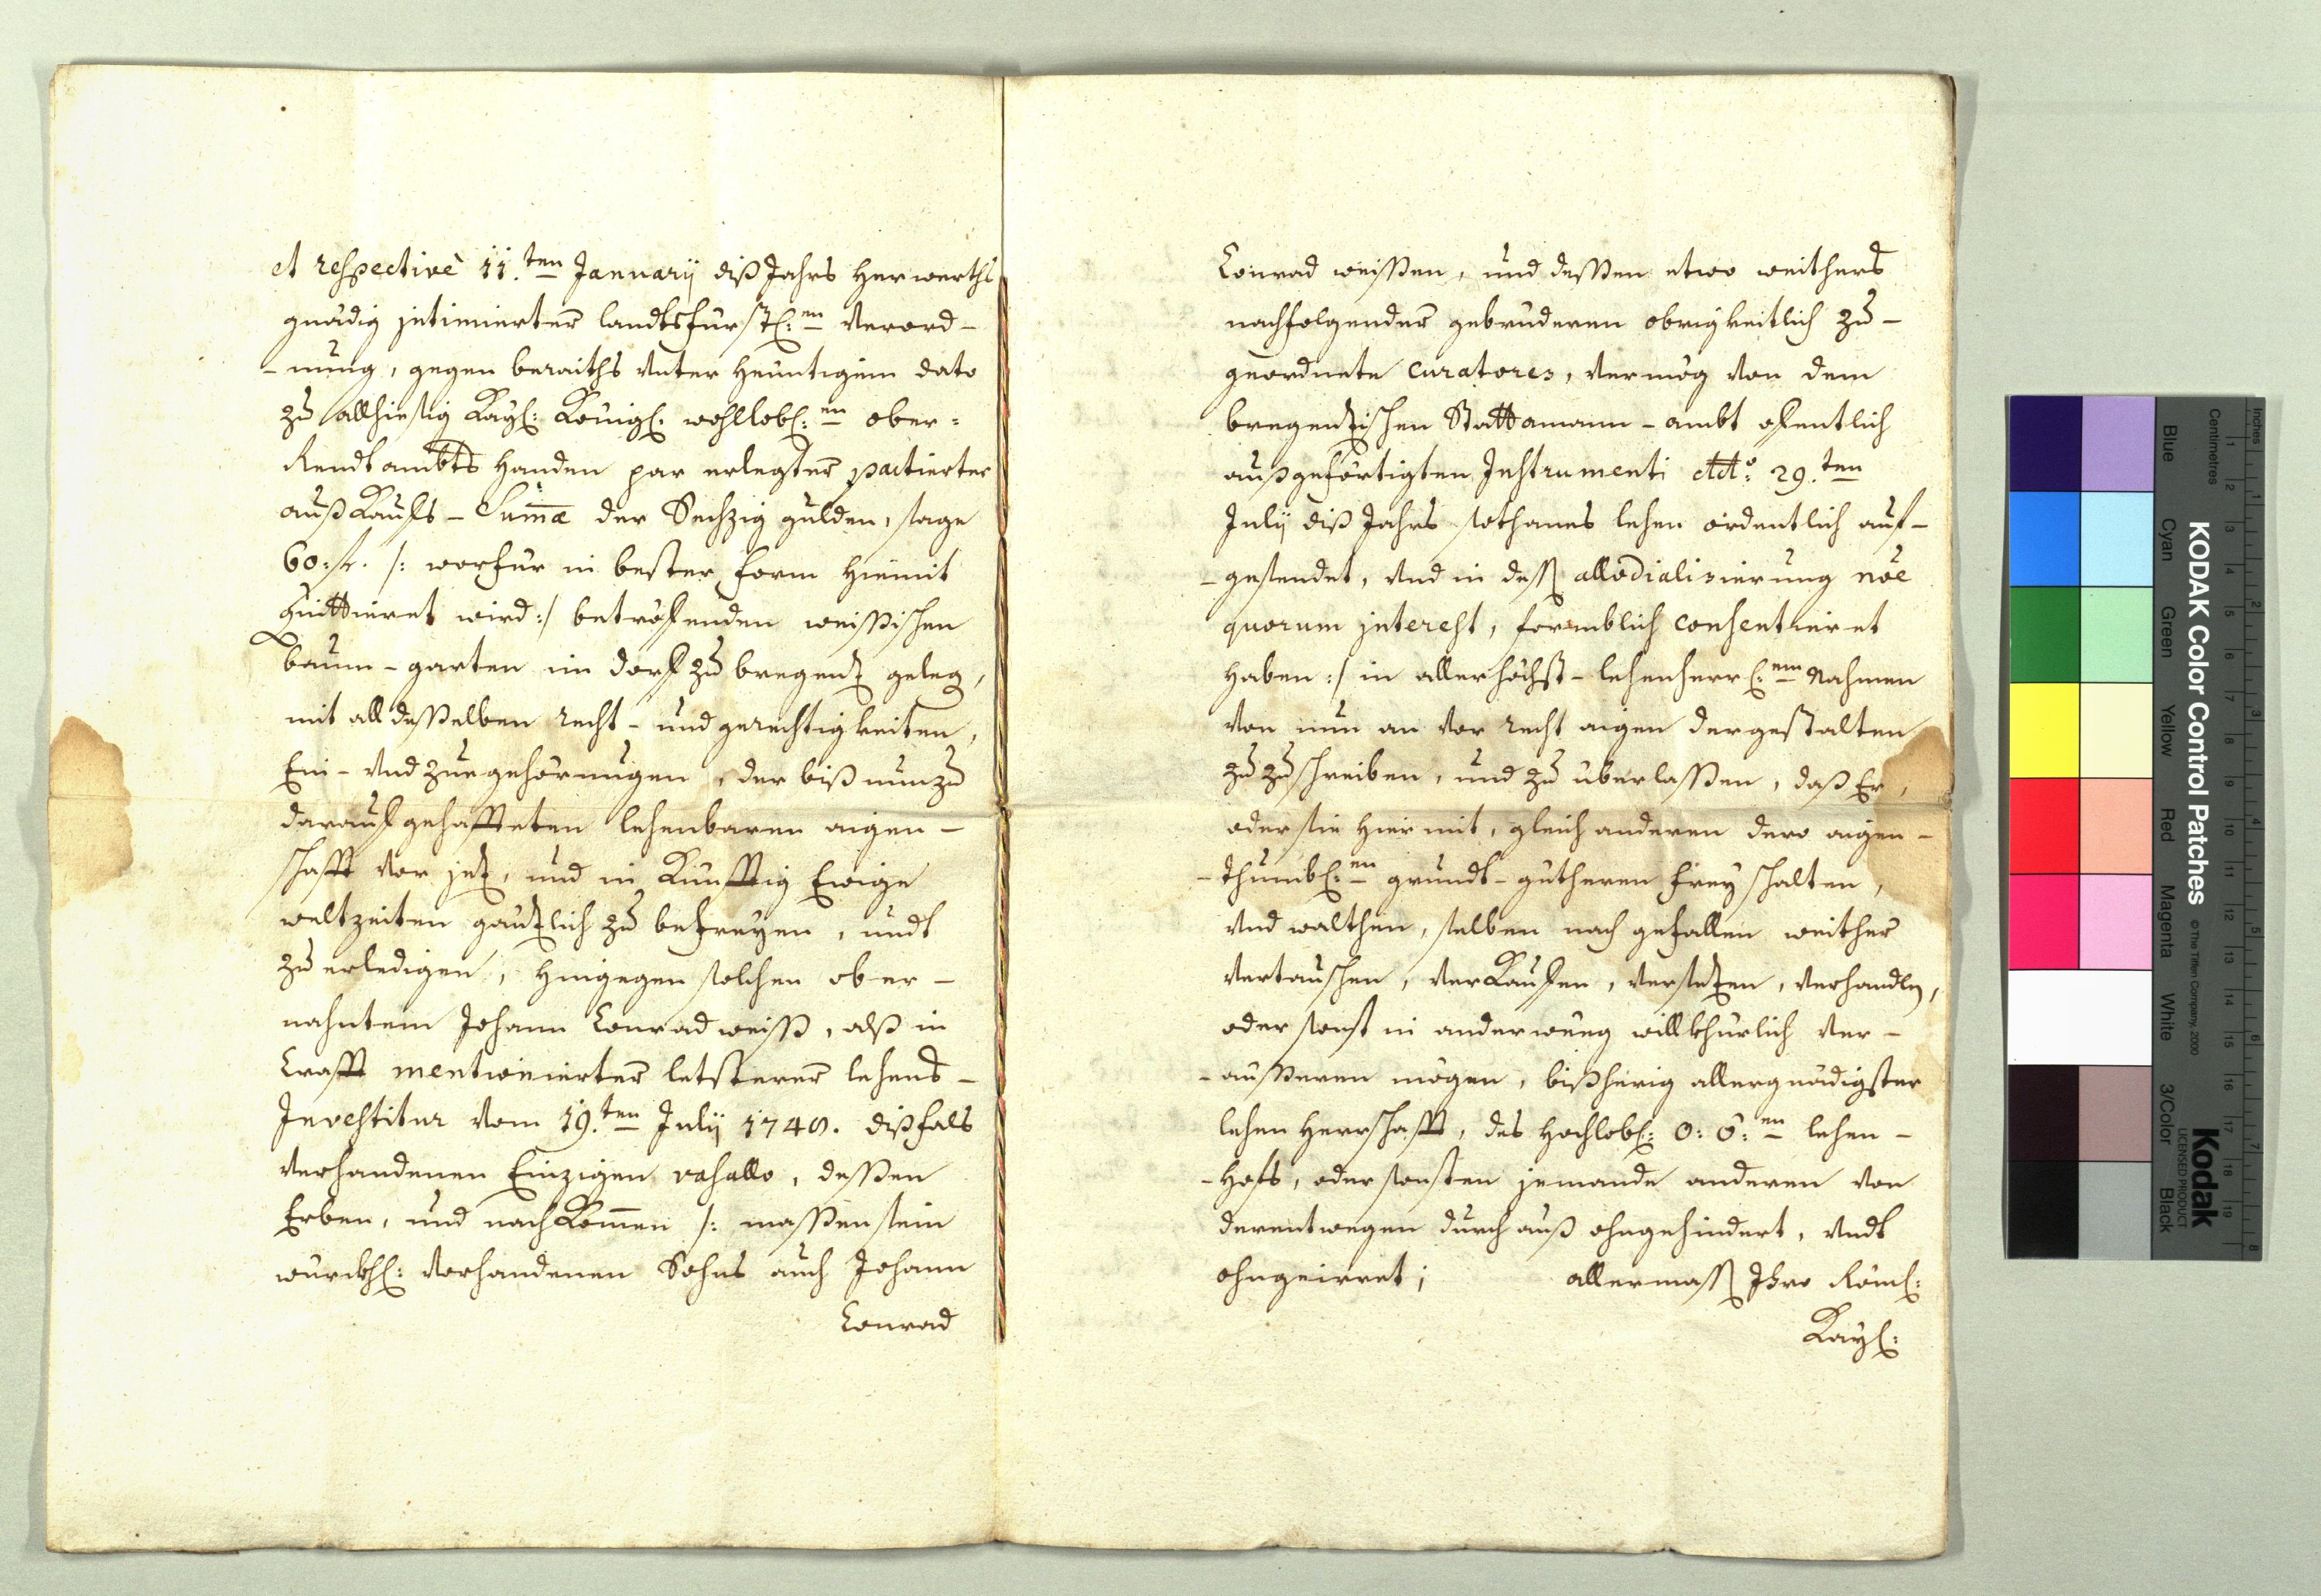 et respectivè 11.ten Januarij diß Jahrs herwerths
gnädig jntimierter landtsfürstl:en Verord-
-nung, gegen beraiths Unter heüntigem dato
zu allhiesig Kayl: Königl. wohllobl:en ober=
Rendtambts handen par erlegter pactierter
außKaufs-Summæ der Sechzig gulden, sage
60:fl. /: worfür in bester form hiemit
quittieret wird:/ betröfenden weissischen
baum-garten im dorf zu bregenz geleg,
mit all desselben recht- und gerechtigkeiten,
Ein- Und Zuegehörungen, der biß nunzu
darauf gehaffteten lehenbaren aigen-
schafft Vor jez, und in Künfftig Ewige
weltzeiten gäntzlich zu befreyen, undt
zu erledigen, hingegen solchen ober-
nahntem Johann Conrad weiss, alß in
Crafft mentionierter letsterer lehens-
Investitur Vom 19.ten Julij 1748. dißfals
Verhandenen Einzigen vasallo, dessen
Erben, und nachKommen /: massen sein
würckhl: Vorhandenen Sohns auch Johann
Conrad
Conrad weissen, und dessen etwo weithers
nachfolgender gebrüderen obrigkeitlich zu-
geordnete Curatores, Vermög Von dem
bregentzischen Stattamann-ambt ofentlich
außgeförtigten Instrumenti ddo: 29.ten
Julij diß Jahrs sothanes lehen ordentlich auf-
-gesendet, Und in dess allodialisierung nôe
quorum jnterest, formblich consentieret
haben:/ in allerhöchst-lehenherrl:em Nahmen
Von nun an Vor recht aigen dergestalten
zu zuschreiben, und zu überlassen, daß Er,
oder sie hiermit, gleich anderen dero aigen-
-thumbl:en grundt-gütheren frey schalten,
Und walthen, selben nach gefallen weither
Vertauschen, VerKaufen, Versetzen, Verhandlen,
oder sonst in anderweeg willkhürlich Ver-
-äusseren mögen, bißherig allergnädigster
lehen Herrschafft, des hochlobl: O: Ö:en lehen-
-hofs, oder sonsten jemande anderen Von
derentwegen durchauß ohngehindert, Undt
ohngeirret; allermass Jhro Röml:
Kayl:
KODAK Color Control Patches
© The Tiffen Company, 2000
Kodak
LICENSED PRODUCT
Inches
Centimetres
1 2 3 4 5 6 7 8
1 2 3 4 5 6 7 8 9 10 11 12 13 14 15 16 17 18 19
Blue Cyan Green Yellow Red Magenta White 3/Color Black